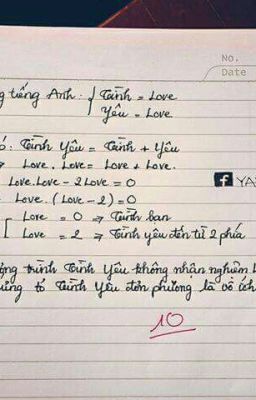 No.
Date
g tiếng Anh: { Tình = Love
Yêu = Love.
ó: Tình Yêu = Tình + Yêu
Love. Love = Love + Love.
Love.Love - 2 Love = 0
Love. (Love - 2) = 0
[ Love = 0 => Tình bạn
Love = 2 => Tình yêu đến từ 2 phía
trình Tình Yêu không nhận nghiệm
tỏ Tình Yêu đơn phương là vô ích
10
f YA